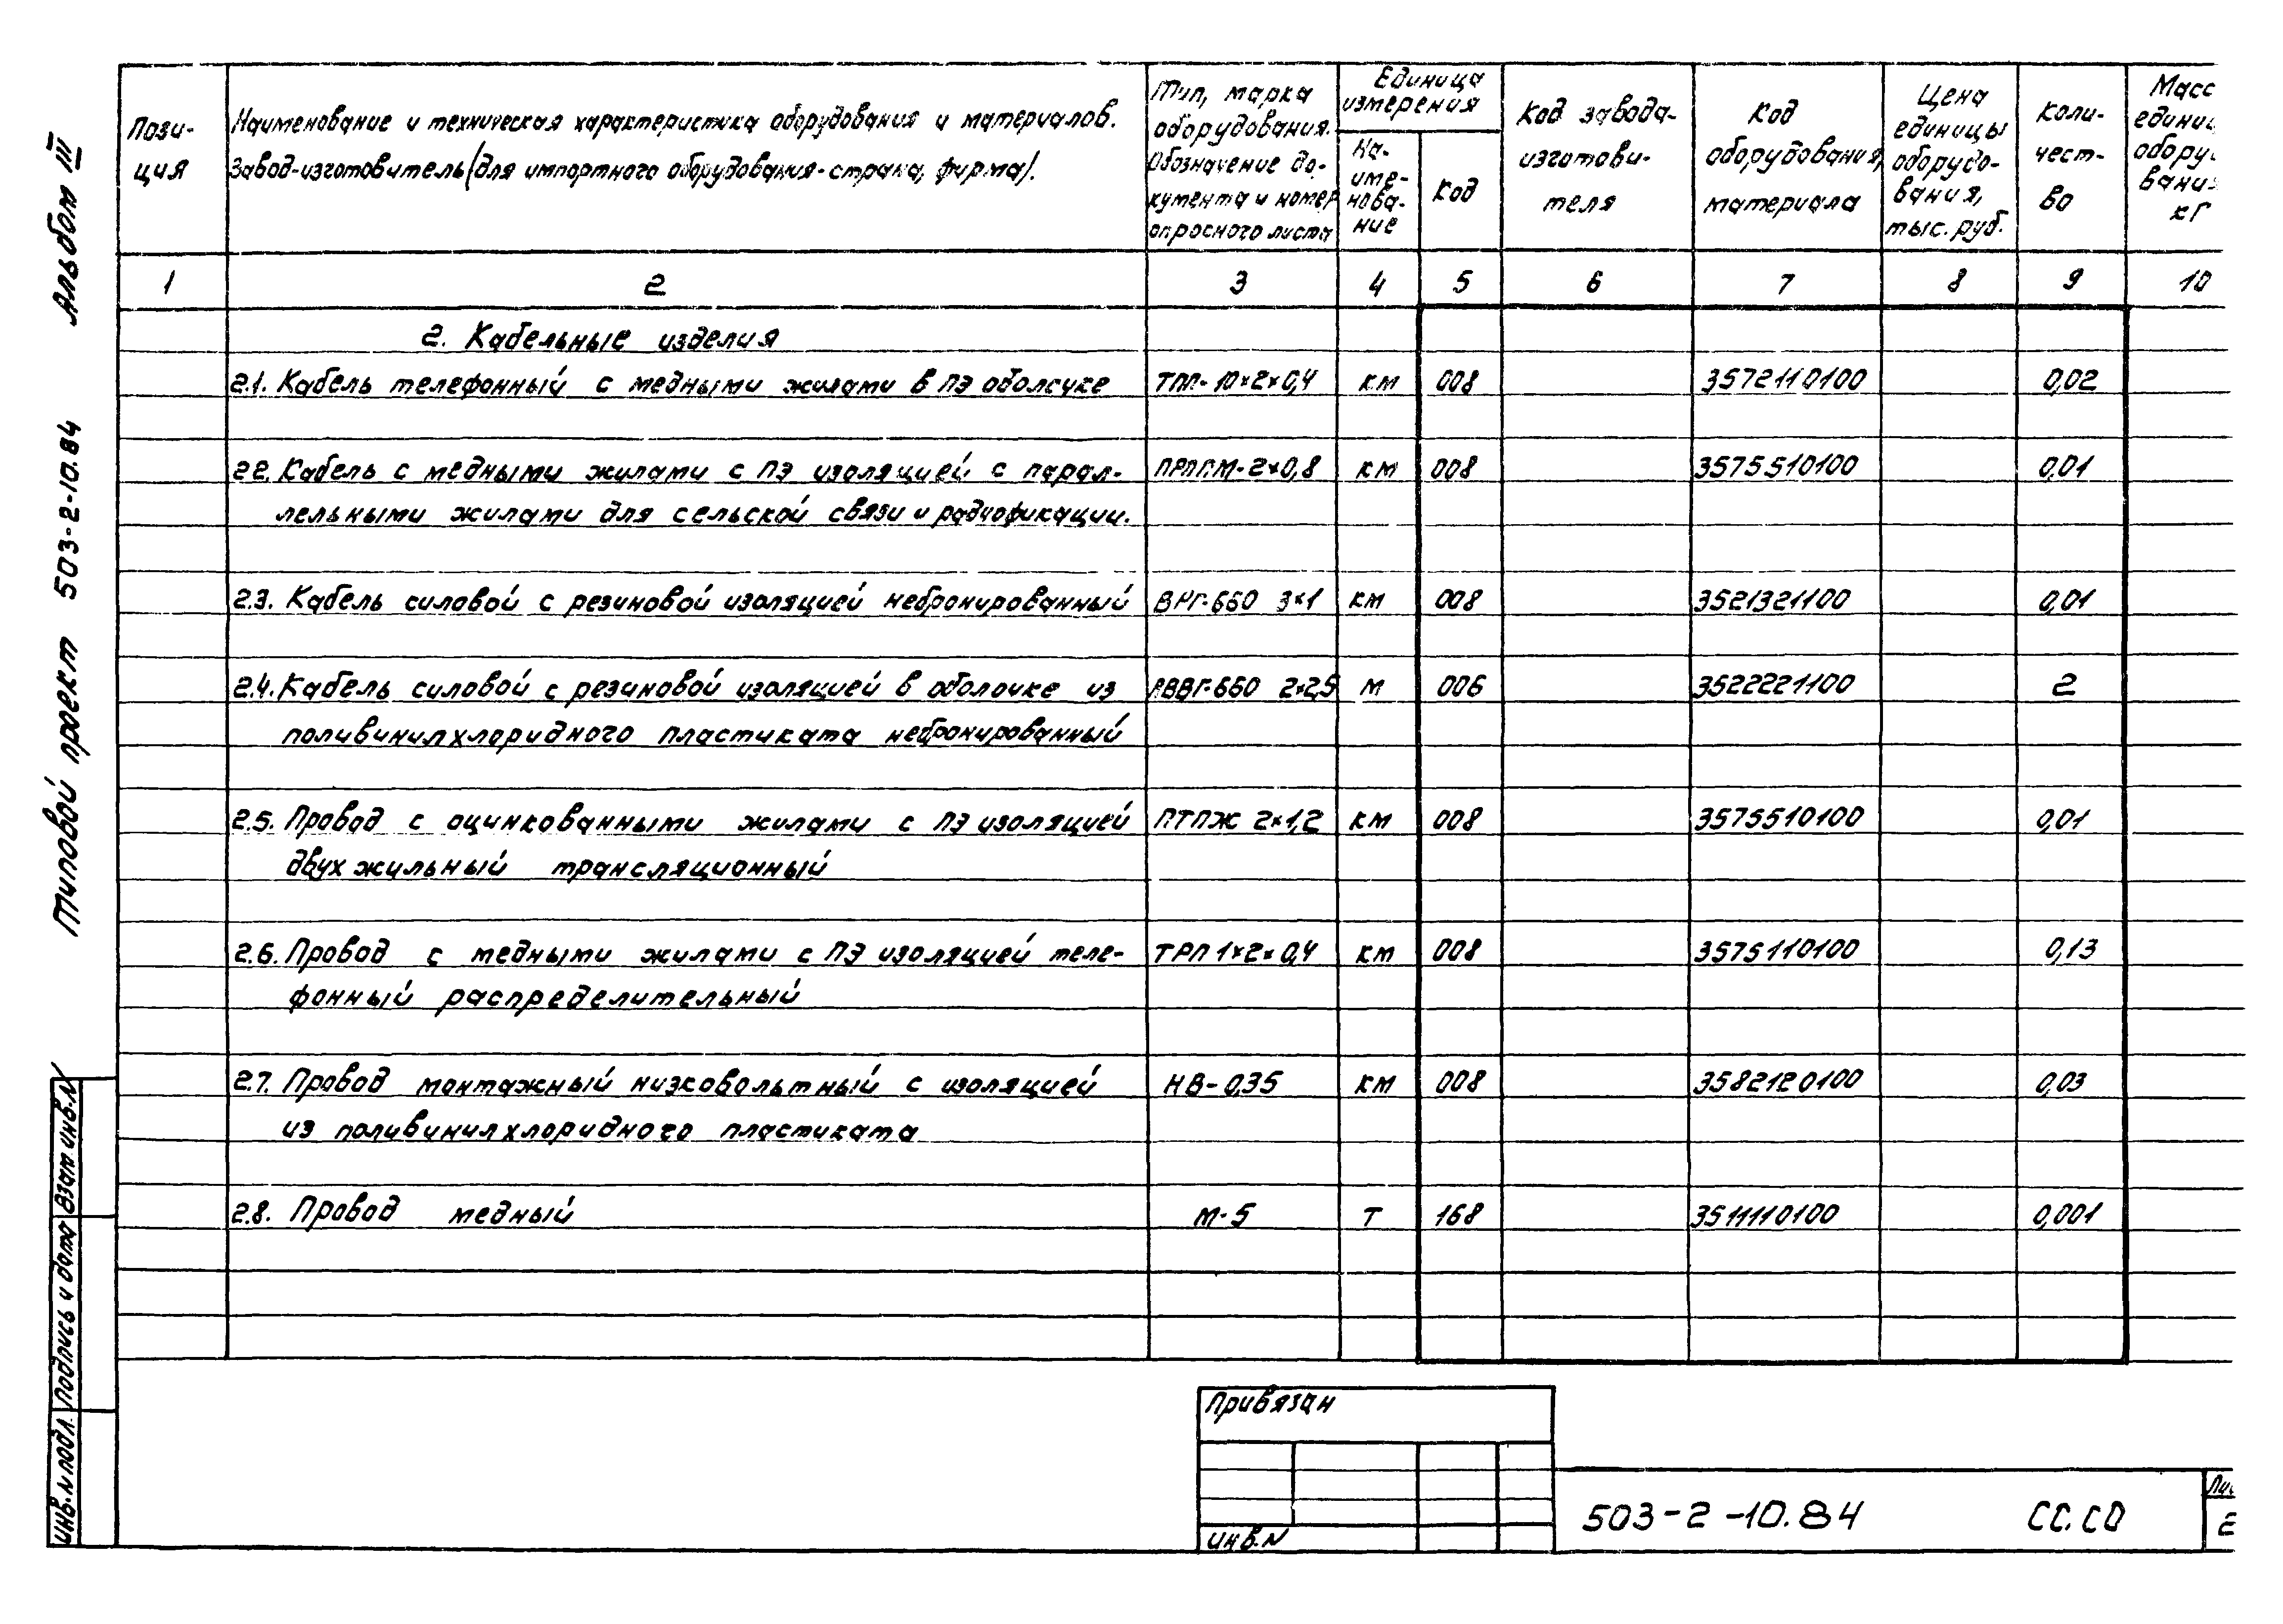 Альбом III
Типовой проект 503-2-10.84
Пози-
ция
Наименование и техническая характеристика оборудования и материалов.
Завод-изготовитель (для импортного оборудования-страна, фирма).
Тип, марка
оборудования.
Обозначение до-
кумента и номер
опросного листа
Единица
измерения
На-
име-
нова-
ние
Код
Код завода-
изготови-
теля
Код
оборудования,
материала
Цена
единицы
оборудо-
вания,
тыс. руб.
Коли-
чест-
во
Масс
един
обору
вани
кг
1 2 3 4 5 6 7 8 9 10
2. Кабельные изделия
2.1. Кабель телефонный с медными жилами в ПЭ оболочке ТПП-10×2×0,4 км 008 3572110100 0,02
2.2. Кабель с медными жилами с ПЭ изоляцией с парал- ПРППМ-2×0,8 км 008 3575510100 0,01
лельными жилами для сельской связи и радиофикации.
2.3. Кабель силовой с резиновой изоляцией небронированный ВНГ-660 3×1 км 008 3521321100 0,01
2.4. Кабель силовой с резиновой изоляцией в оболочке из АВВГ-660 2×2,5 м 006 3522221100 2
поливинилхлоридного пластиката небронированный
2.5. Провод с оцинкованными жилами с ПЭ изоляцией ПТПЖ 2×1,2 км 008 3575510100 0,01
двухжильный трансляционный
2.6. Провод с медными жилами с ПЭ изоляцией теле- ТРП 1×2×0,4 км 008 3575110100 0,13
фонный распределительный
2.7. Провод монтажный низковольтный с изоляцией НВ-0,35 км 008 3582120100 0,03
из поливинилхлоридного пластиката
2.8. Провод медный М-5 т 168 3511110100 0,001
Инв.N подл. Подпись и дата Взам.инв.N
Привязан
Инв.N
503-2-10.84 СС.СО
Ли
2